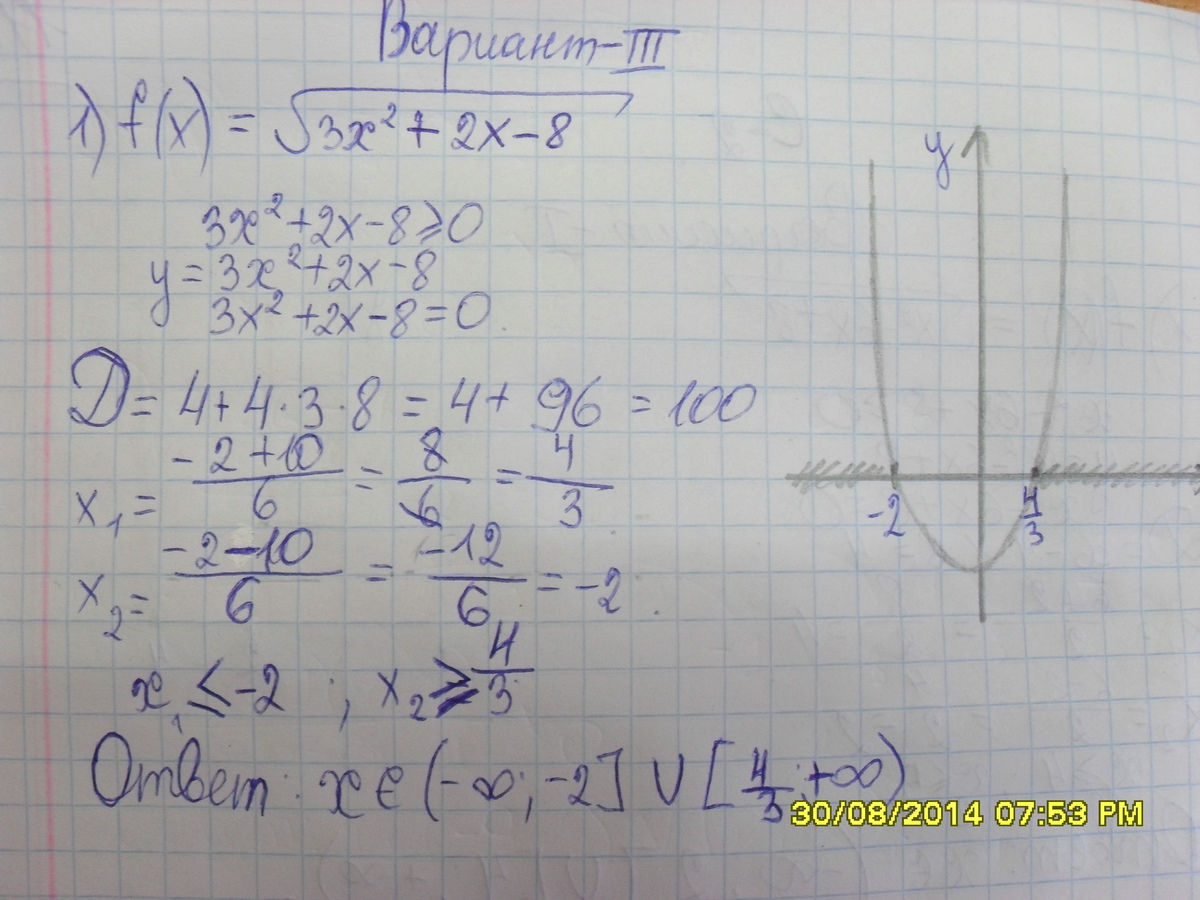 Вариант-III
1) f(x) = √3x² + 2x - 8
3x² + 2x - 8 ≥ 0
y = 3x² + 2x - 8
3x² + 2x - 8 = 0
D = 4 + 4·3·8 = 4 + 96 = 100
x₁ = (-2+10)/6 = 8/6 = 4/3
x₂ = (-2-10)/6 = -12/6 = -2
x₁ ≤ -2 ; x₂ ≥ 4/3
Ответ: x ∈ (-∞; -2] ∪ [4/3; +∞)
y
-2
4/3
30/08/2014 07:53 PM